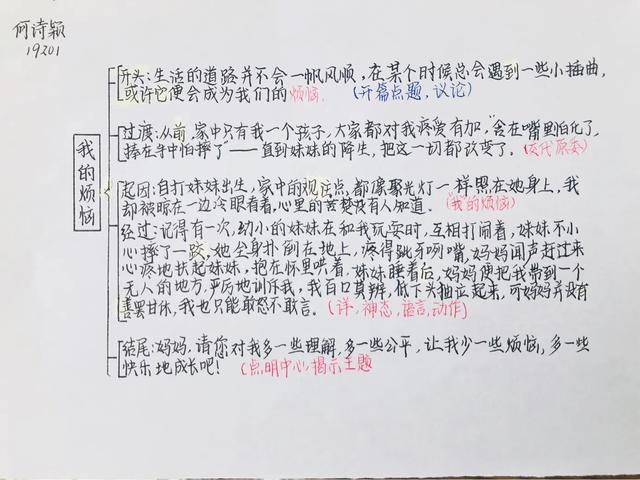 何诗颖
19201
我的烦恼
开头:生活的道路并不会一帆风顺,在某个时候总会遇到一些小插曲,
或许它便会成为我们的烦恼。(开篇点题,议论)
过渡:从前,家中只有我一个孩子,大家都对我疼爱有加,"含在嘴里怕化了,
捧在手中怕摔了"——直到妹妹的降生,把这一切都改变了。(交代原委)
起因:自打妹妹出生,家中的观注点,都像聚光灯一样照在她身上,我
却被晾在一边冷眼看着,心里的苦楚没有人知道。("我"的烦恼)
经过:记得有一次,幼小的妹妹在和我玩耍时,互相打闹着,妹妹不小
心摔了一跤,她全身扑到在地上,疼得呲牙咧嘴,妈妈闻声赶过来
心疼地扶起妹妹,抱在怀里哄着,妹妹睡着后,妈妈便把我带到一个
无人的地方,严厉地训斥我,我百口莫辨,低下头抽泣起来,可妈妈并没有
善罢甘休,我也只能敢怒不敢言。(详,神态,语言,动作)
结尾:妈妈,请您对我多一些理解,多一些公平,让我少一些烦恼,多一些
快乐地成长吧!(点明中心,揭示主题